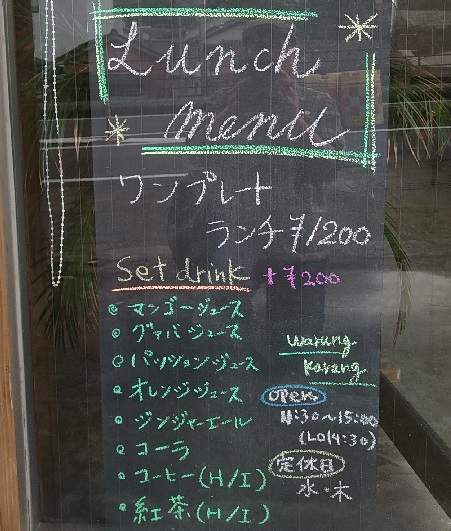 Lunch
menu
ワンプレート
ランチ ¥1200
Set drink +¥200
マンゴージュース
グァバジュース
パッションジュース
オレンジジュース
ジンジャーエール
コーラ
コーヒー(H/I)
紅茶(H/I)
Warung
Karang
open
11:30〜15:00
(LO14:30)
定休日
水・木